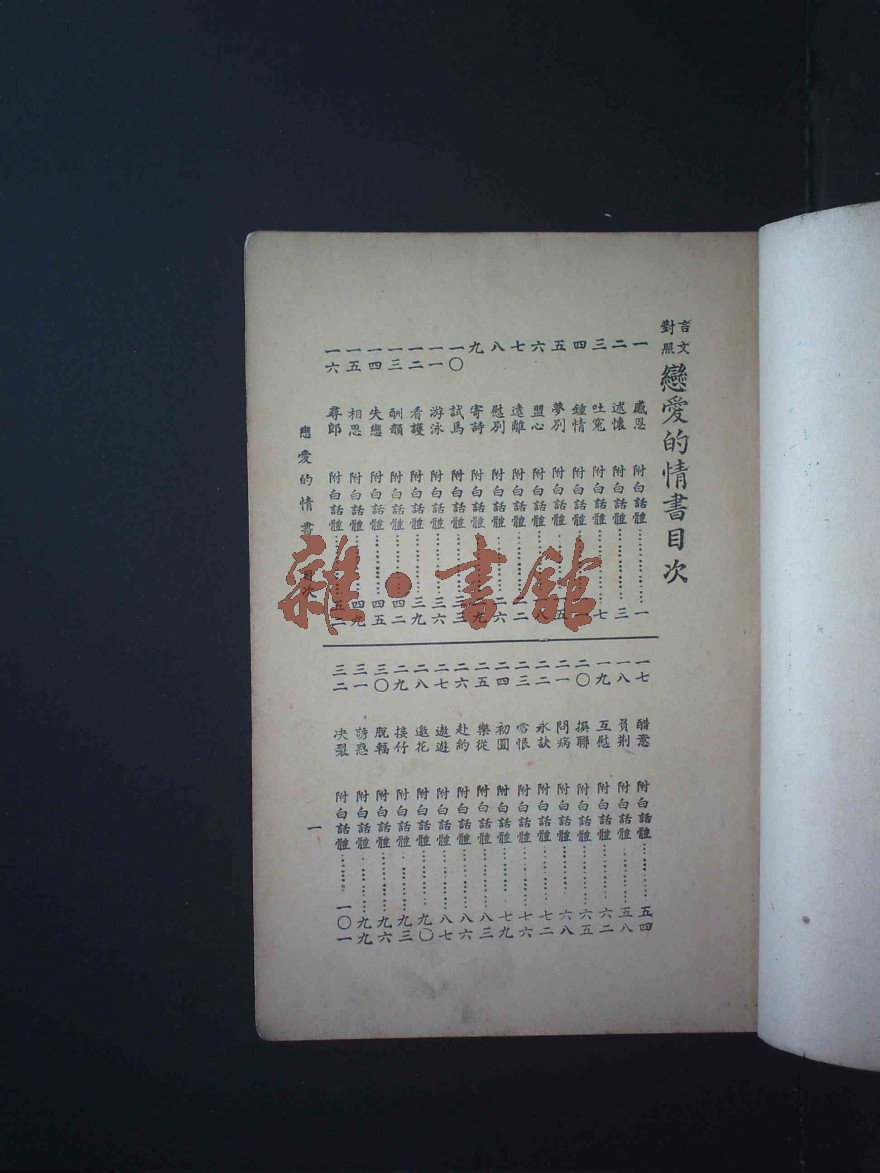 言文對照戀愛的情書目次
一 感恩 附白話體………………一
二 述懷 附白話體………………三
三 吐冤 附白話體………………七
四 鍾情 附白話體………………
五 夢別 附白話體………………五
六 盟心 附白話體………………八
七 遠離 附白話體………………二二
八 慰別 附白話體………………二六
九 寄詩 附白話體………………二九
一〇 試馬 附白話體………………三三
一一 游泳 附白話體………………三六
一二 看護 附白話體………………三九
一三 酬韻 附白話體………………四二
一四 失戀 附白話體………………四五
一五 相思 附白話體………………四九
一六 尋郎 附白話體………………五二
一七 醋意 附白話體………………五四
一八 負荆 附白話體………………五八
一九 互慰 附白話體………………六二
二〇 撰聯 附白話體………………六五
二一 問病 附白話體………………六八
二二 永訣 附白話體………………七二
二三 雪恨 附白話體………………七六
二四 初圓 附白話體………………七九
二五 樂從 附白話體………………八三
二六 赴約 附白話體………………八六
二七 遨遊 附白話體………………八七
二八 邀花 附白話體………………九〇
二九 接竹 附白話體………………九三
三〇 脫輻 附白話體………………九六
三一 誘惑 附白話體………………九九
三二 決裂 附白話體………………一〇一
戀愛的情書 目次
一
雜·書館